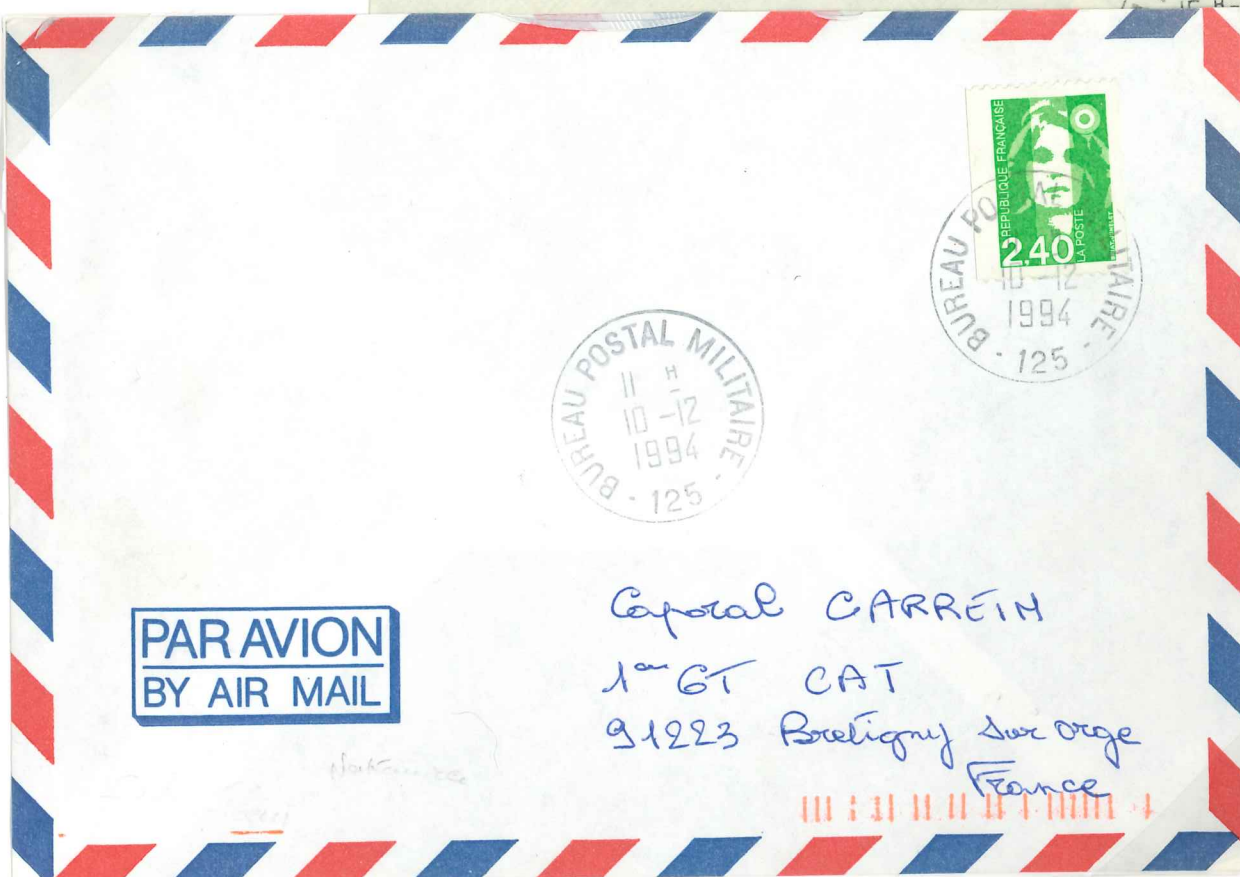 REPUBLIQUE FRANÇAISE
2,40
LA POSTE
BUREAU POSTAL MILITAIRE
10 - 12
1994
- 125 -
BUREAU POSTAL MILITAIRE
11 H
10 - 12
1994
- 125 -
PAR AVION
BY AIR MAIL
Caporal CARREIM
1er GT CAT
91223 Bretigny sur orge
France